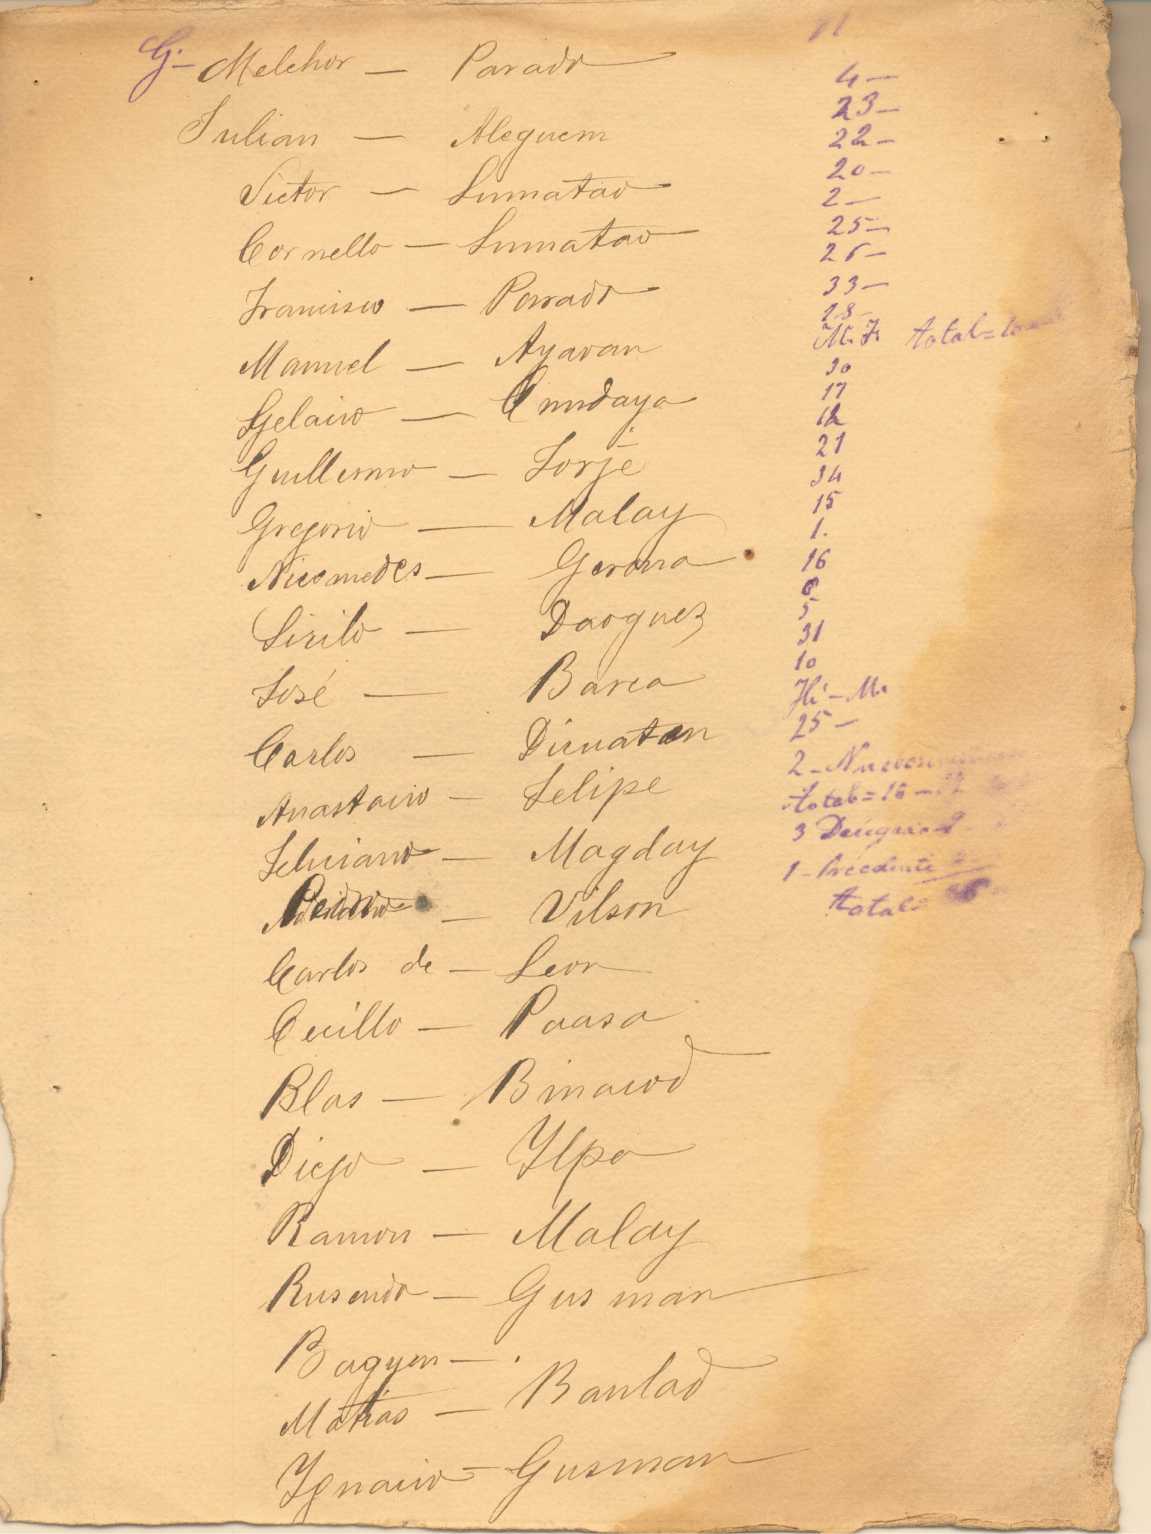 G- Melchor — Parado
Julian — Aleguem
Victor — Lumatao
Cornello — Lumatao
Francisco — Parrado
Manuel — Ayavan
Gelacio — Cundaya
Guillermo — Jorje
Gregorio — Malay
Nicomedes — Gerona
Sirilo — Daoguez
José — Barea
Carlos — Dicuatan
Anastacio — Felipe
Feliciano — Magday
Pedro — Vilson
Carlos de — Leon
Cecillo — Paasa
Blas — Binacod
Diego — Ylpa
Ramon — Malay
Rusendo — Gusman
Bagyen — .
Matias — Banlad
Ygnacio — Gusman
11
4 —
23 —
22 —
20 —
2 —
25 —
26 —
33 —
28 —
M. F. total =
30
17
12
21
34
15
1.
16
5
31
10
Hi - M.
25 —
2 -
total = 16 —
3
1 - Precedente
total =